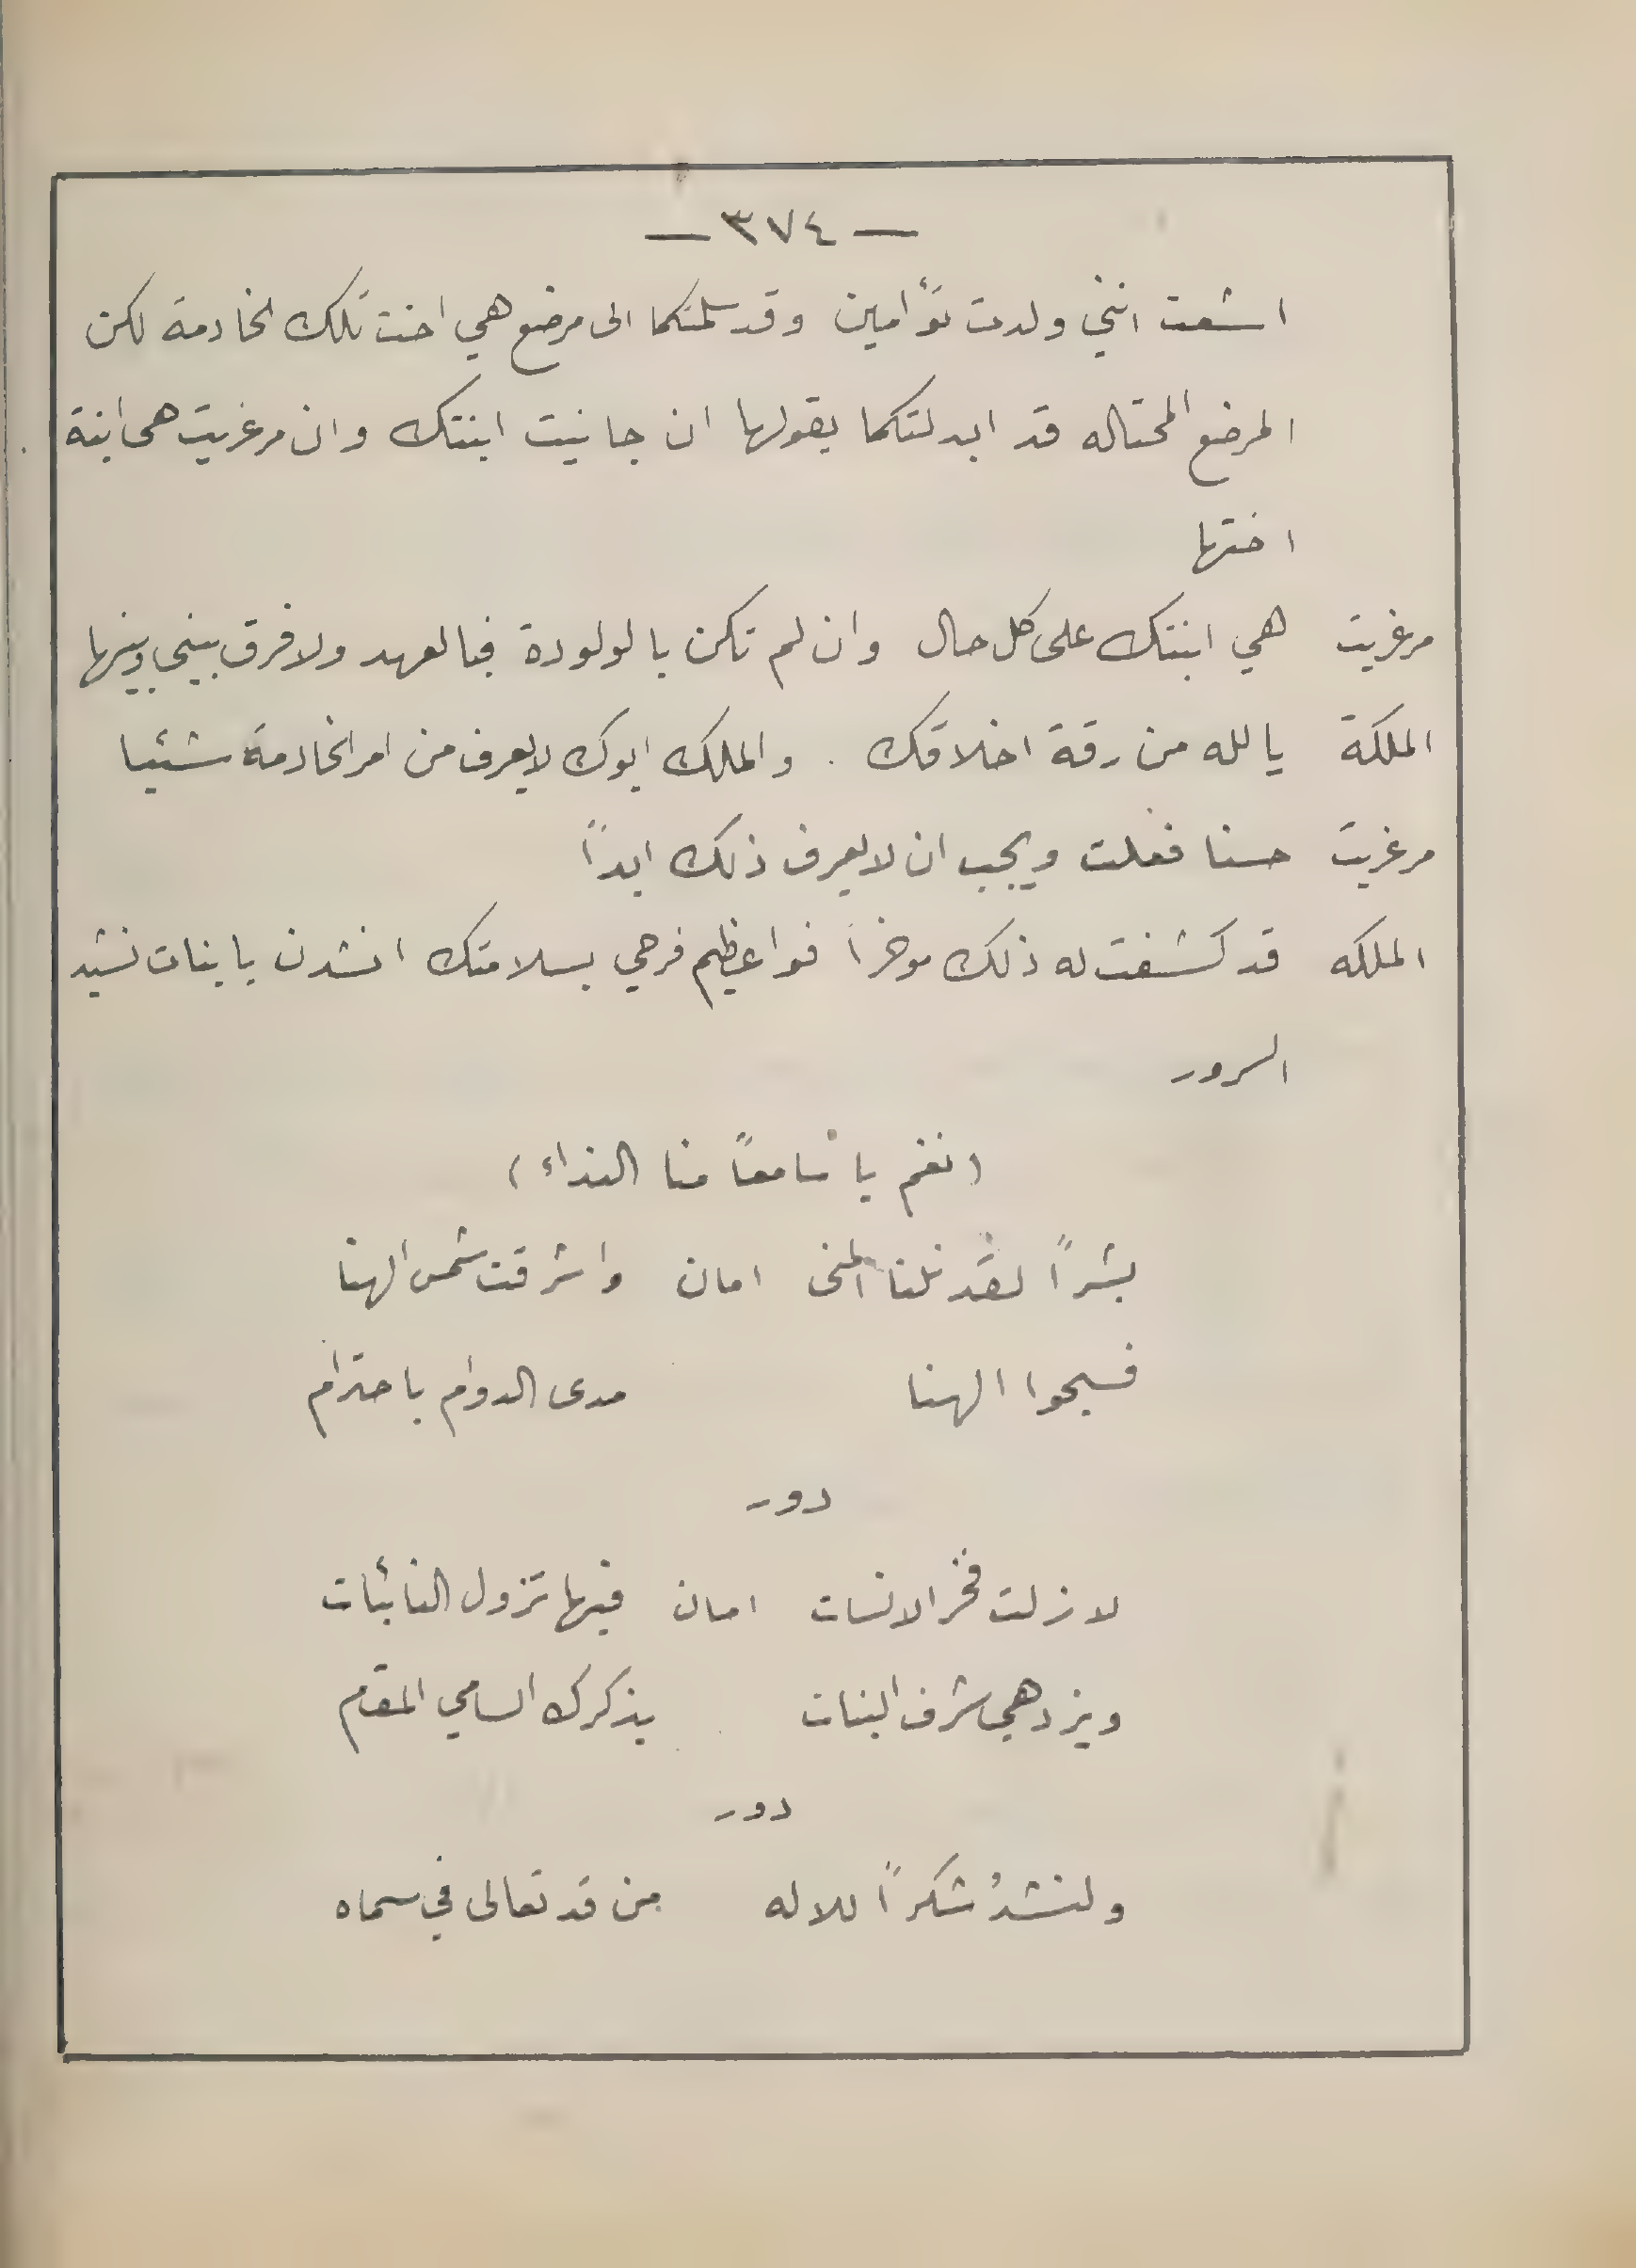 — ٣٧٤ —
اشعت انني ولدت تؤامين وقد سلمتكما الى مرضع هي اخت تلك الخادمة لكن
المرضع المحتاله قد ابدلتكما بقولها ان جانيت ابنتك وان مرغريت هى ابنة
اختها
مرغريت هي ابنتك على كل حال وان لم تكن بالولودة فبالعهد ولا فرق بيني وبينها
الملكة يالله من رقة اخلاقك . والملك ابوك لا يعرف من امر الخادمة شئيا
مرغريت حسنا فعلت ويجب ان لا يعرف ذلك ابداً
الملكه قد كشفت له ذلك موخراً فوا عظيم فرحي بسلامتك انشدن يا بنات نشيد
السرور
(نغم يا سامعاً منا النداء)
بشراً لقد نلنا المنى امان واشرقت شمس الهنا
فسبحوا الهنا مدى الدوام باحترام
دور
لا زلت فخر الانسات امان فيها تزول النائبات
ويزدهي شرف البنات بذكرك السامي المقام
دور
ولنشدُ شكراً للاله من قد تعالى في سماه